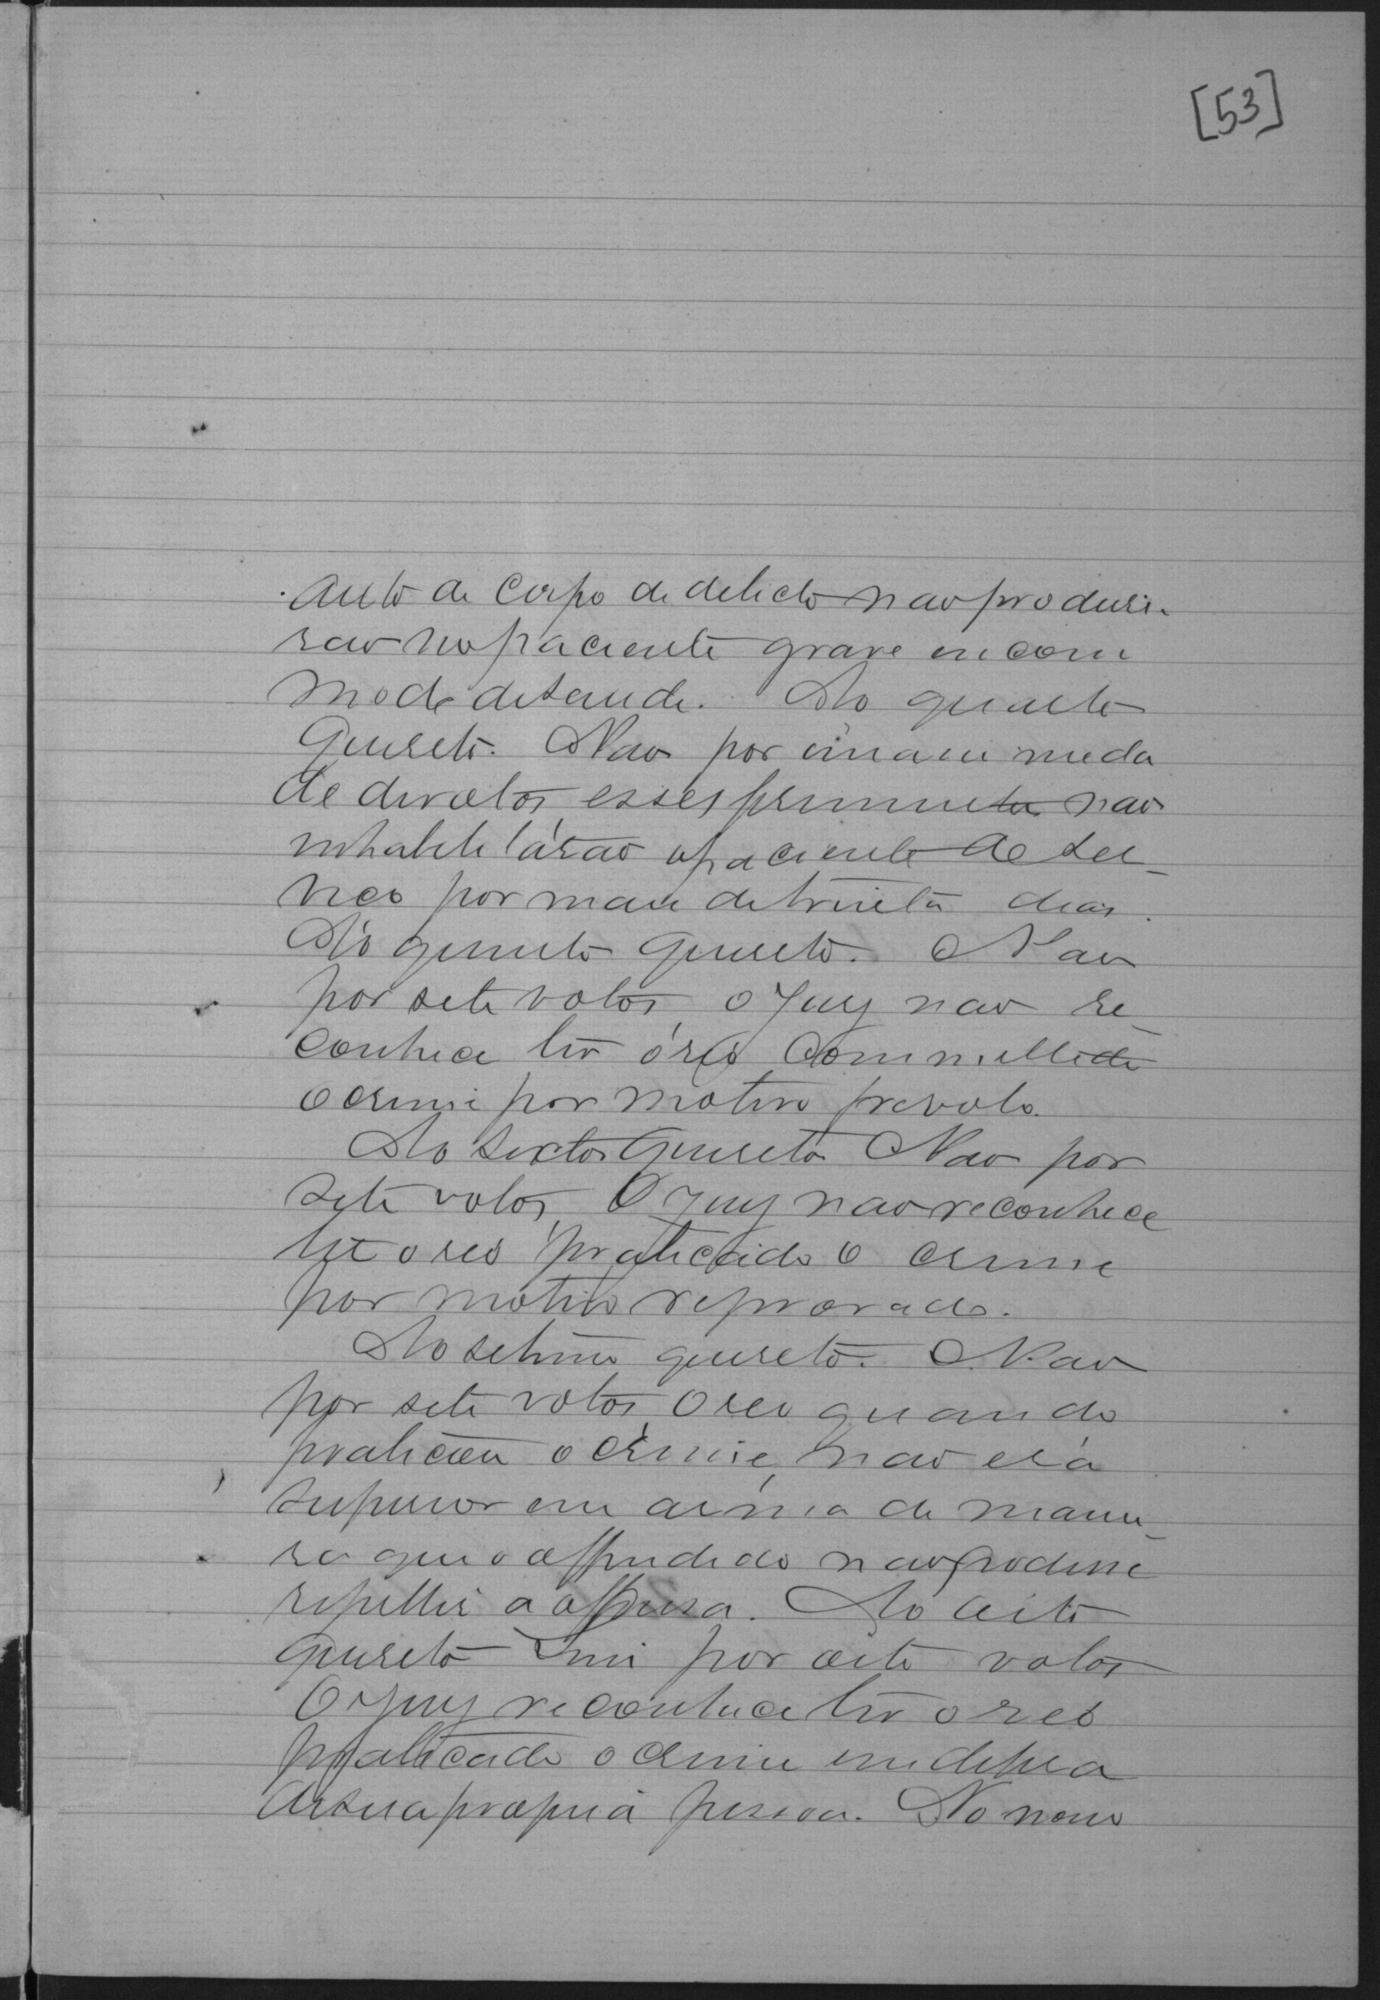 [53]
auto de Corpo de delicto nao produsi-
rao no paciente grave encom
modo de saude. Ao quarto
Quesito. Nao por unanimida
de de votos, esses ferimentos nao
inhabilitárao o paciente de ser_
viço por mais de trinta dias.
Ao quinto Quesito. Nao
por sete votos o Jury nao re_
conhece ter o réo commettido
o crime por motivo frivolo.
Ao sexto Quesito Nao por
sete votos, O Jury nao reconhece
ter o reo praticado o crime
por motivo reprovado.
Ao setimo quesito. Nao
por sete votos, O reo quando
praticou o crime, nao era
superior em arma de manei_
ra que o offendido nao podesse
repellir a offensa. Ao oito
quesito Sim por oito votos
O Jury reconhece ter o reo
praticado o crime em defesa
de sua propria pessoa. Ao nono